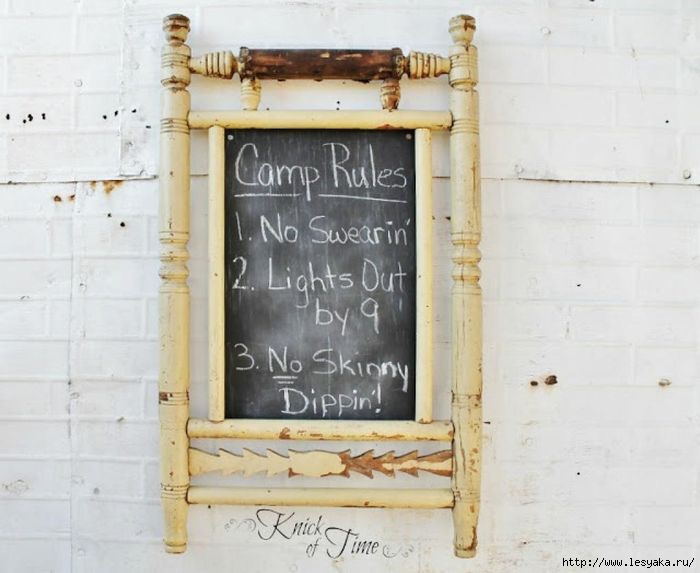 Camp Rules
1. No Swearin'
2. Lights Out
by 9
3. No Skinny
Dippin'!
Knick
of Time
http://www.lesyaka.ru/